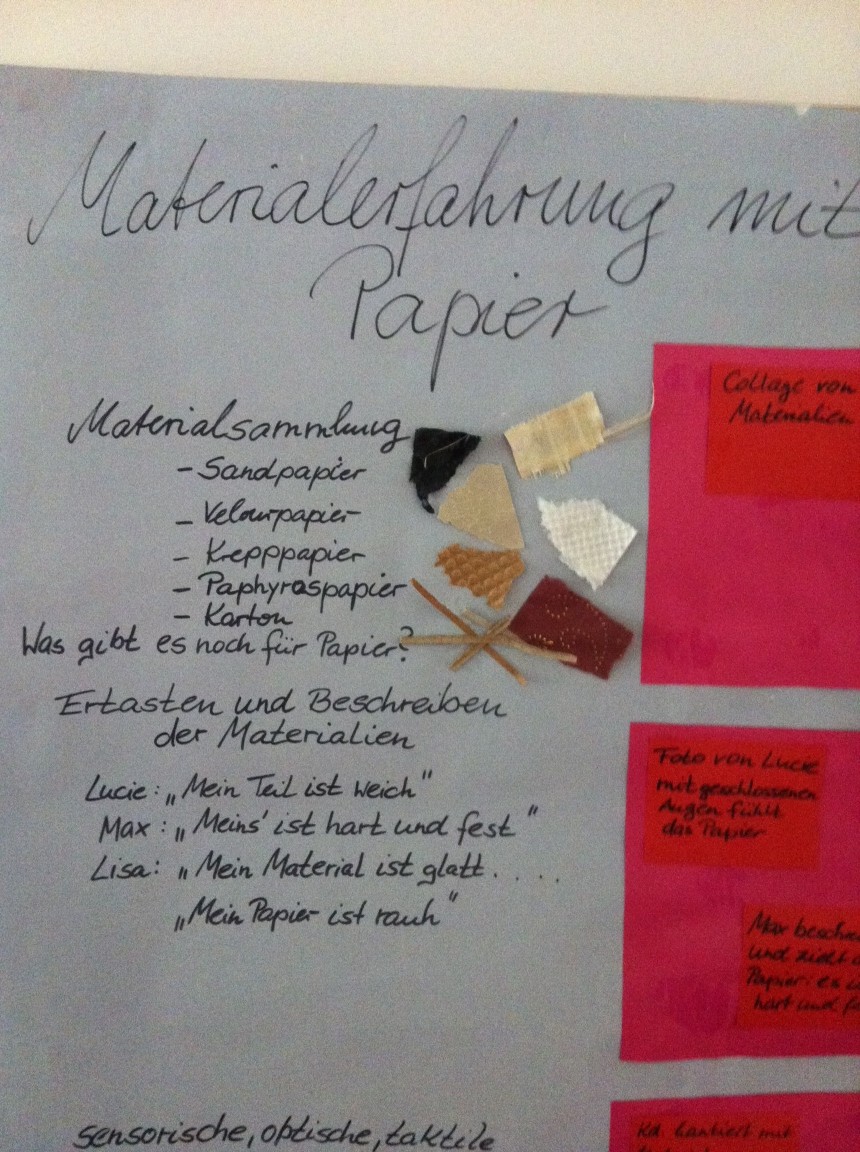 Materialerfahrung mit
Papier
Materialsammlung
- Sandpapier
- Velourpapier
- Krepppapier
- Paphyrospapier
- Karton
Was gibt es noch für Papier?
Ertasten und Beschreiben
der Materialien
Lucie: „Mein Teil ist weich"
Max: „Meins' ist hart und fest"
Lisa: „Mein Material ist glatt....
„Mein Papier ist rauh"
sensorische, optische, taktile
Collage von
Materialien
Foto von Lucie
mit geschlossenen
Augen fühlt
das Papier
Max beschre
und
Papier: es
hart und f
Kd. hantiert mit